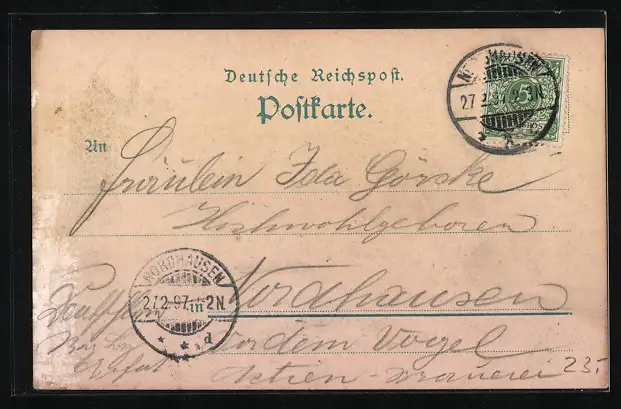 Deutsche Reichspost.
Postkarte.
NORDHAUSEN
27.2.97. 2N
5
An
Fräulein Ida Görske
Hochwohlgeboren
NORDHAUSEN
27.2.97. 2N
d
in Nordhausen
Vor dem Vogel
Actien-Brauerei
Erfurt
23.-